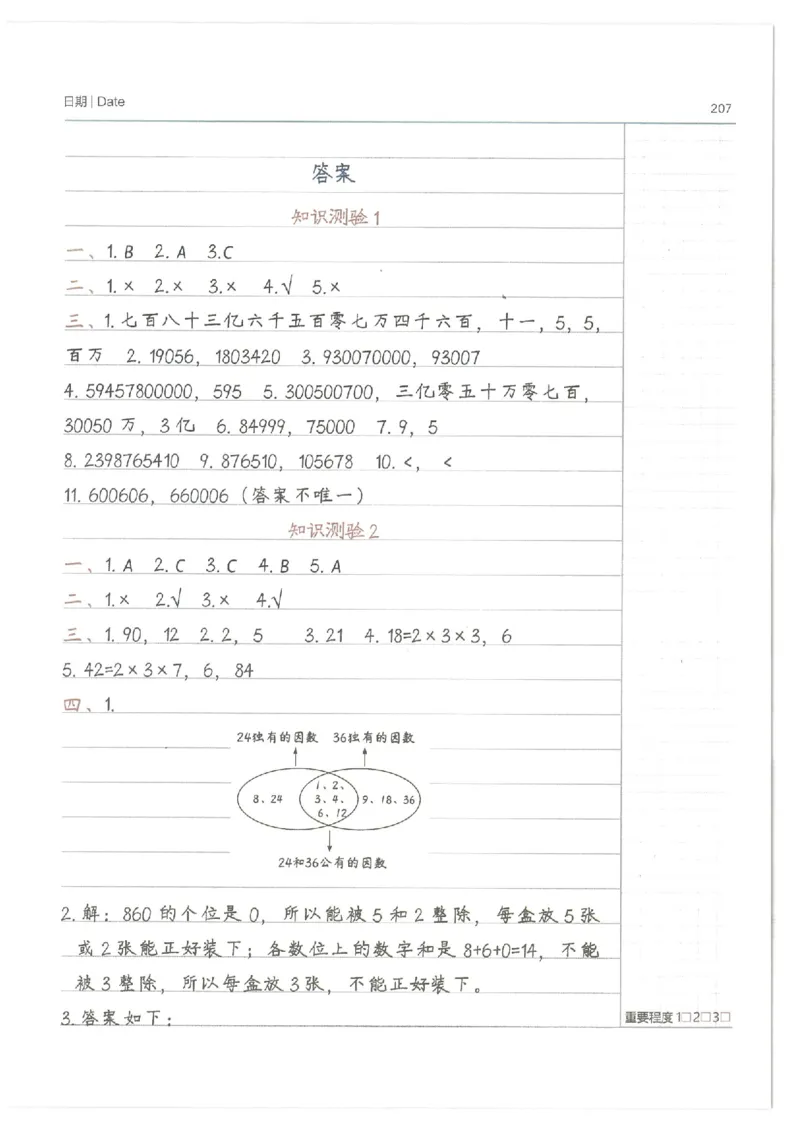 日期 | Date
207
答案
知识测验1
一、1. B 2. A 3. C
二、1. × 2. × 3. × 4. √ 5. ×
三、1. 七百八十三亿六千五百零七万四千六百，十一，5，5，
百万 2. 19056，1803420 3. 930070000，93007
4. 59457800000，595 5. 300500700，三亿零五十万零七百，
30050 万，3 亿 6. 84999，75000 7. 9，5
8. 2398765410 9. 876510，105678 10. <，<
11. 600606，660006（答案不唯一）
知识测验2
一、1. A 2. C 3. C 4. B 5. A
二、1. × 2. √ 3. × 4. √
三、1. 90，12 2. 2，5 3. 21 4. 18=2×3×3，6
5. 42=2×3×7，6，84
四、1.
24独有的因数 36独有的因数
1、2、
8、24 3、4、 9、18、36
6、12
24和36公有的因数
2. 解：860 的个位是 0，所以能被 5 和 2 整除，每盒放 5 张
或 2 张能正好装下；各数位上的数字和是 8+6+0=14，不能
被 3 整除，所以每盒放 3 张，不能正好装下。
3. 答案如下：
重要程度 1□2□3□